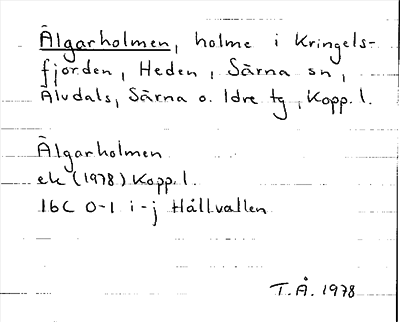 Älgarholmen, holme i Kringels-
fjorden, Heden, Särna sn,
Älvdals, Särna o. Idre tg, Kopp. l.
Älgarholmen
ek (1978) Kopp. l.
16C 0-1 i-j Hållvallen
T.Å. 1978